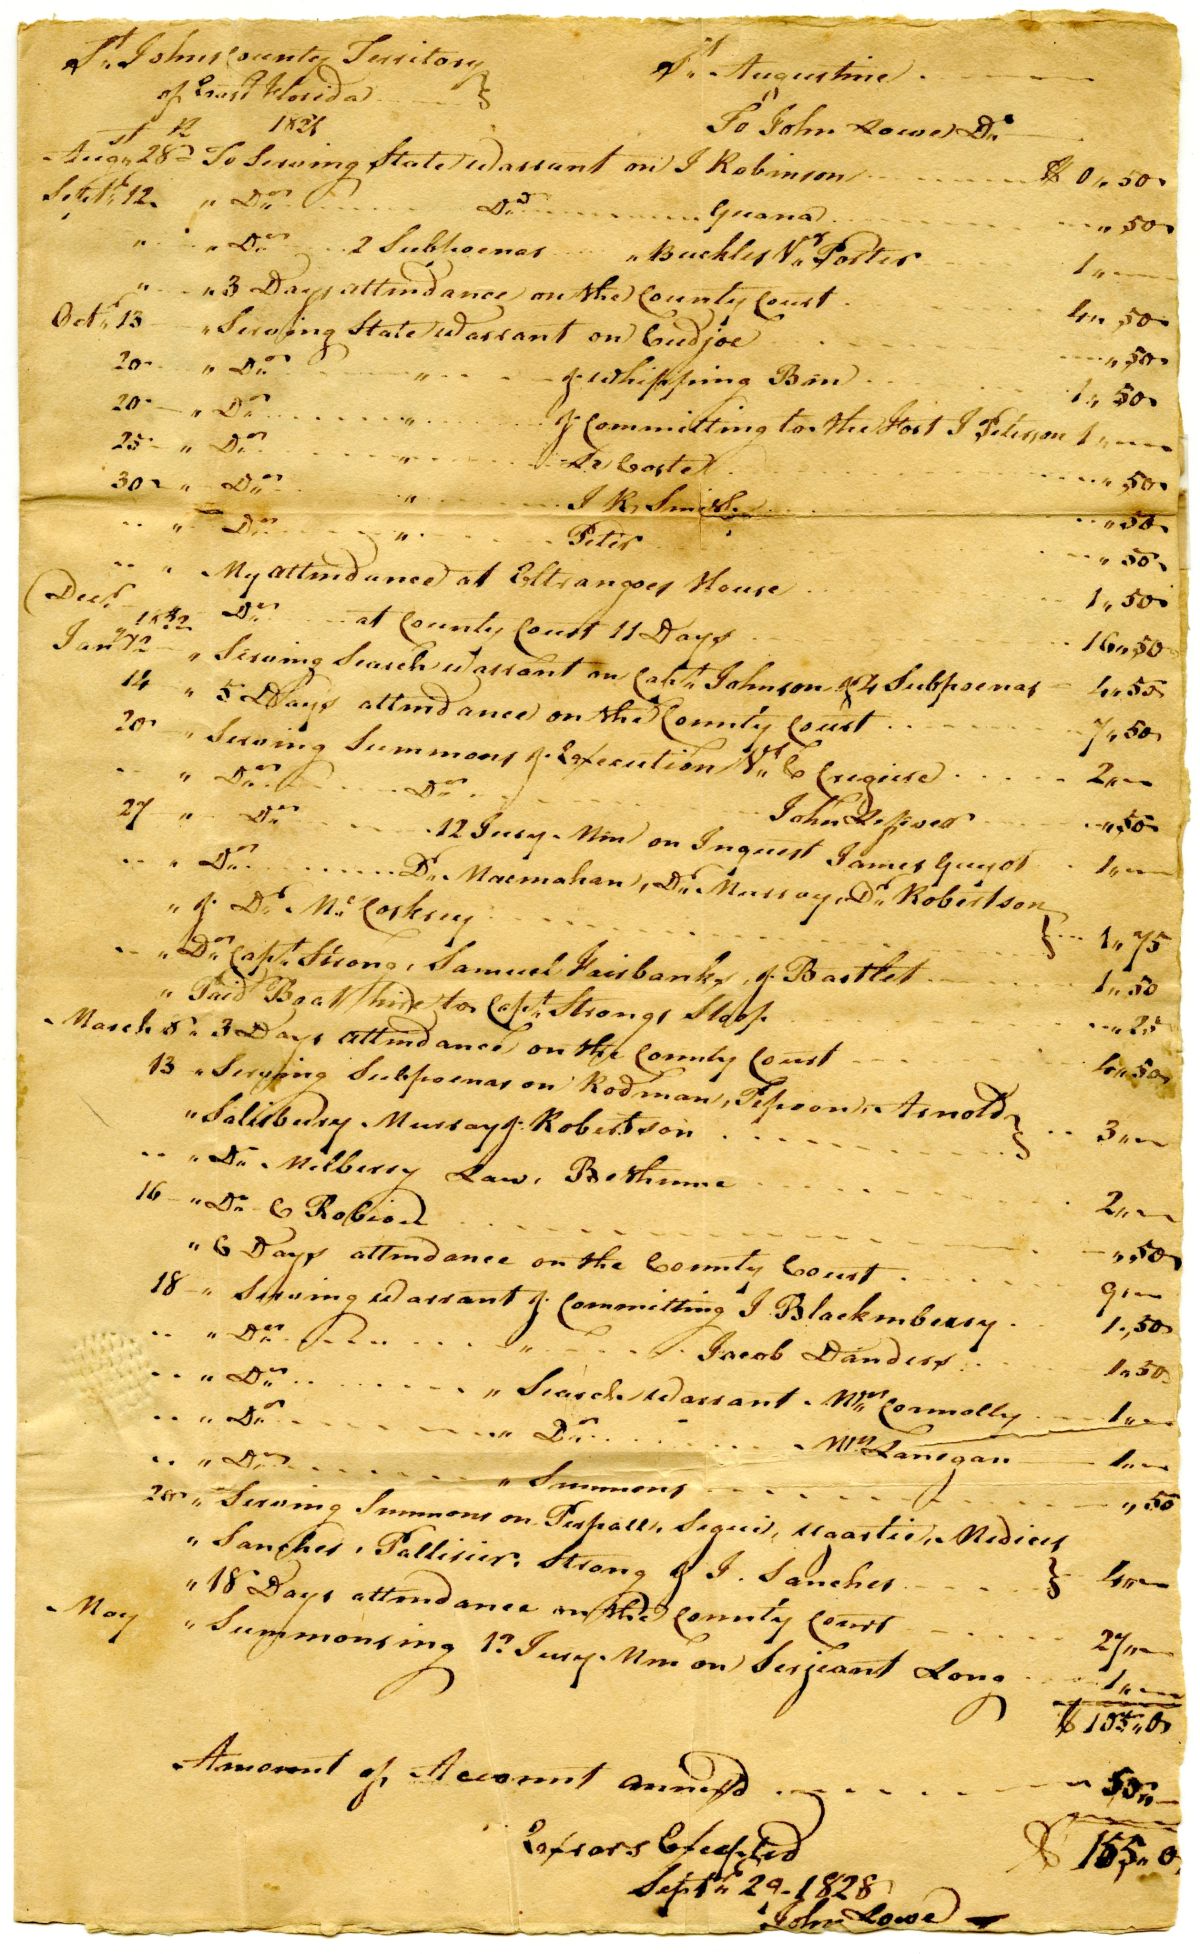 St Johns County Territory
of East Florida
St Augustine
To John Lowe Dr
1821
Augst 28th To Serving State Warrant on J Robinson $ 0,,50
Septr 12 " Do Do Guana ,,50
" " Do 2 Subpoenas " Buckley Vs Porter 1,,—
" " 3 Days attendance on the County Court 4,,50
Octr 13 " Serving State Warrant on Cudjoe ,,50
20 " Do " & whipping Ben 1,,50
20 " Do " & Committing to the Fort J Peterson 1,,—
25 " Do " De Coster ,,50
30 " Do " J R, Smith ,,50
" " Do " Peter ,,50
" " My attendance at House 1,,50
Decr " Do at County Court 11 Days 16,,50
Jany 2 " Serving Search Warrant on Capt Johnson & 4 Subpoenas 4,,50
14 " 5 Days attendance on the County Court 7,,50
20 " Serving Summons & Execution Vs C 2,,—
" " Do Do John ,,50
27 " Do 12 Jury Men on Inquest James Guyot 1,,—
" " Do Dr Macmahan, Dr Murray, Dr Robertson
" & Dr Mc Coskrey 1,,75
" " Do Capt Strong, Samuel Fairbanks, & Bartlet 1,,50
" Paid Boat hire to Capt Strongs Sloop ,,25
March 8 " 3 Days attendance on the County Court 4,,50
13 " Serving Subpoenas on Rodman, Pepoon, Arnold
" Salisbury Murray & Robertson 3,,—
" " Do Milberry Law, Bethune 2,,—
16 " Do C Robiou ,,50
" 6 Days attendance on the County Court 9,,—
18 " Serving Warrant & Committing J Blackmberry 1,,50
" " Do " Jacob Danders 1,,50
" " Do " Search Warrant Mrs Connolly 1,,—
" " Do " Do Mrs Lanegan 1,,—
" " Do " Summons ,,50
" Serving Summons on Perpall, Segui, Medices
" Sanches, Pallisier, Strong & J. Sanches 4,,—
" 18 Days attendance on the County Court 27,,—
May " Summonsing 12 Jury Men on Serjeant Long 1,,—
$ 105,,0
Amount of Account annexd 50,,—
$ 155,,0
Errors Excepted
Septr 29 1828
John Lowe